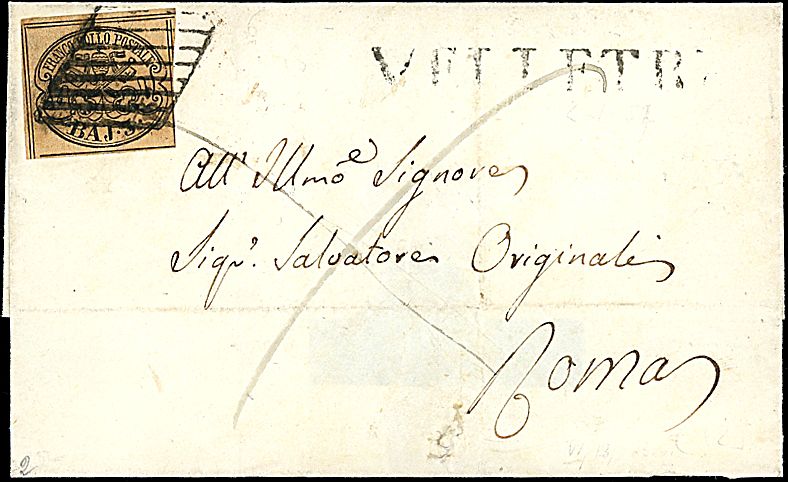 FRANCO BOLLO POSTALE
BAJ. 3
VELLETRI
All' Illmo e Signore
Sigr. Salvatore Originali
Roma
2